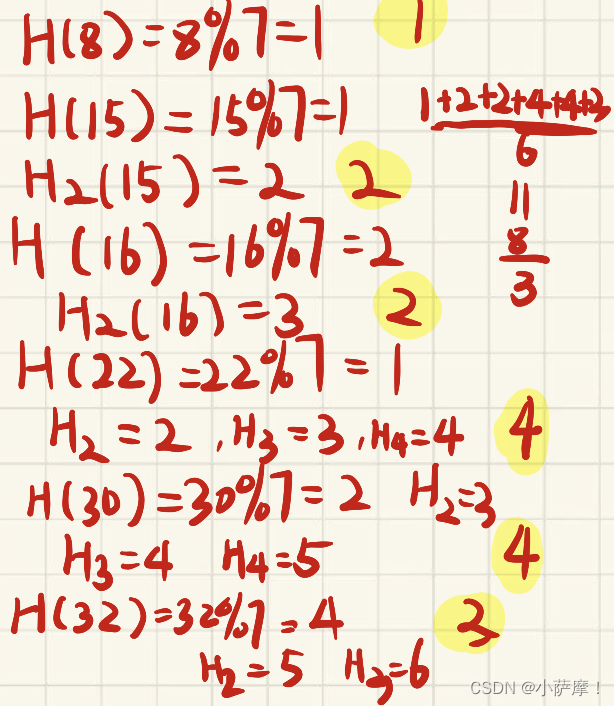 H(8)=8%7=1 1
H(15)=15%7=1
H₂(15)=2 2
H(16)=16%7=2
H₂(16)=3 2
H(22)=22%7=1
H₂=2,H₃=3,H₄=4 4
H(30)=30%7=2 H₂=3
H₃=4 H₄=5 4
H(32)=32%7=4 3
H₂=5 H₃=6
1+2+2+4+4+3
6
||
8
3
CSDN @小萨摩！